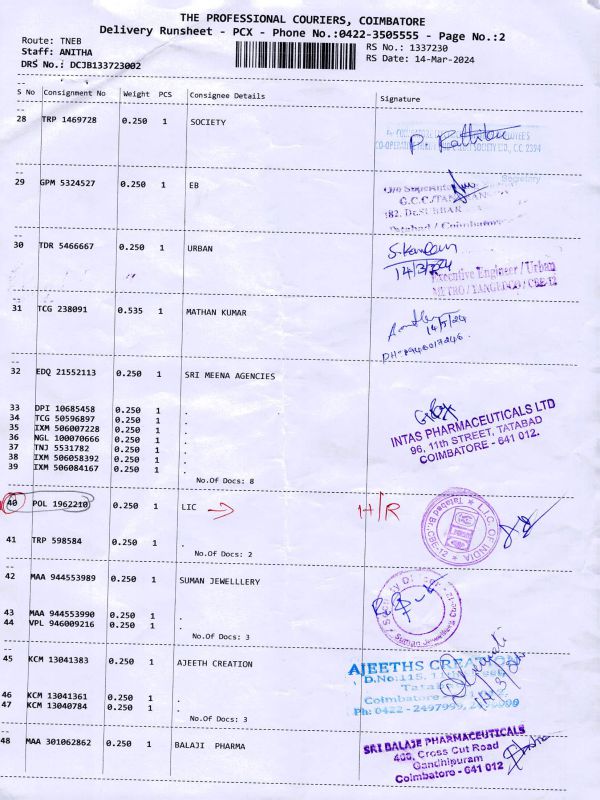 THE PROFESSIONAL COURIERS, COIMBATORE
Delivery Runsheet - PCX - Phone No.:0422-3505555 - Page No.:2
Route: TNEB
RS No.: 1337230
Staff: ANITHA
RS Date: 14-Mar-2024
DRS No.: DCJB133723002
S No Consignment No Weight PCS Consignee Details Signature
28 TRP 1469728 0.250 1 SOCIETY
CO-OPERATIVE SOCIETY LTD., C.C. 2394
Secretary
29 GPM 5324527 0.250 1 EB
G.C.C./
182. Dr.SUBBAR
Tatabad / Coimbatore
30 TDR 5466667 0.250 1 URBAN
14/3/2024
Executive Engineer / Urban
METRO / TANGEDCO / CBE-12
31 TCG 238091 0.535 1 MATHAN KUMAR
32 EDQ 21552113 0.250 1 SRI MEENA AGENCIES
33 DPI 10685458 0.250 1 .
34 TCG 50596897 0.250 1 .
35 IXM 506007228 0.250 1 .
36 NGL 100070666 0.250 1 .
37 TNJ 5531782 0.250 1 .
38 IXM 506058392 0.250 1 .
39 IXM 506084167 0.250 1 .
INTAS PHARMACEUTICALS LTD
96, 11th STREET, TATABAD
COIMBATORE - 641 012.
No.Of Docs: 8
40 POL 1962210 0.250 1 LIC → H/R
L.I.C. OF INDIA
41 TRP 598584 0.250 1 .
No.Of Docs: 2
42 MAA 944553989 0.250 1 SUMAN JEWELLLERY
43 MAA 944553990 0.250 1 .
44 VPL 946009216 0.250 1 .
Suman Jewellers
No.Of Docs: 3
45 KCM 13041383 0.250 1 AJEETH CREATION
46 KCM 13041361 0.250 1 .
47 KCM 13040784 0.250 1 .
AJEETHS CREATION
D.No:115,
Coimbatore
Ph: 0422 - 2497999,
No.Of Docs: 3
48 MAA 301062862 0.250 1 BALAJI PHARMA
SRI BALAJE PHARMACEUTICALS
400, Cross Cut Road
Gandhipuram
Coimbatore - 641 012